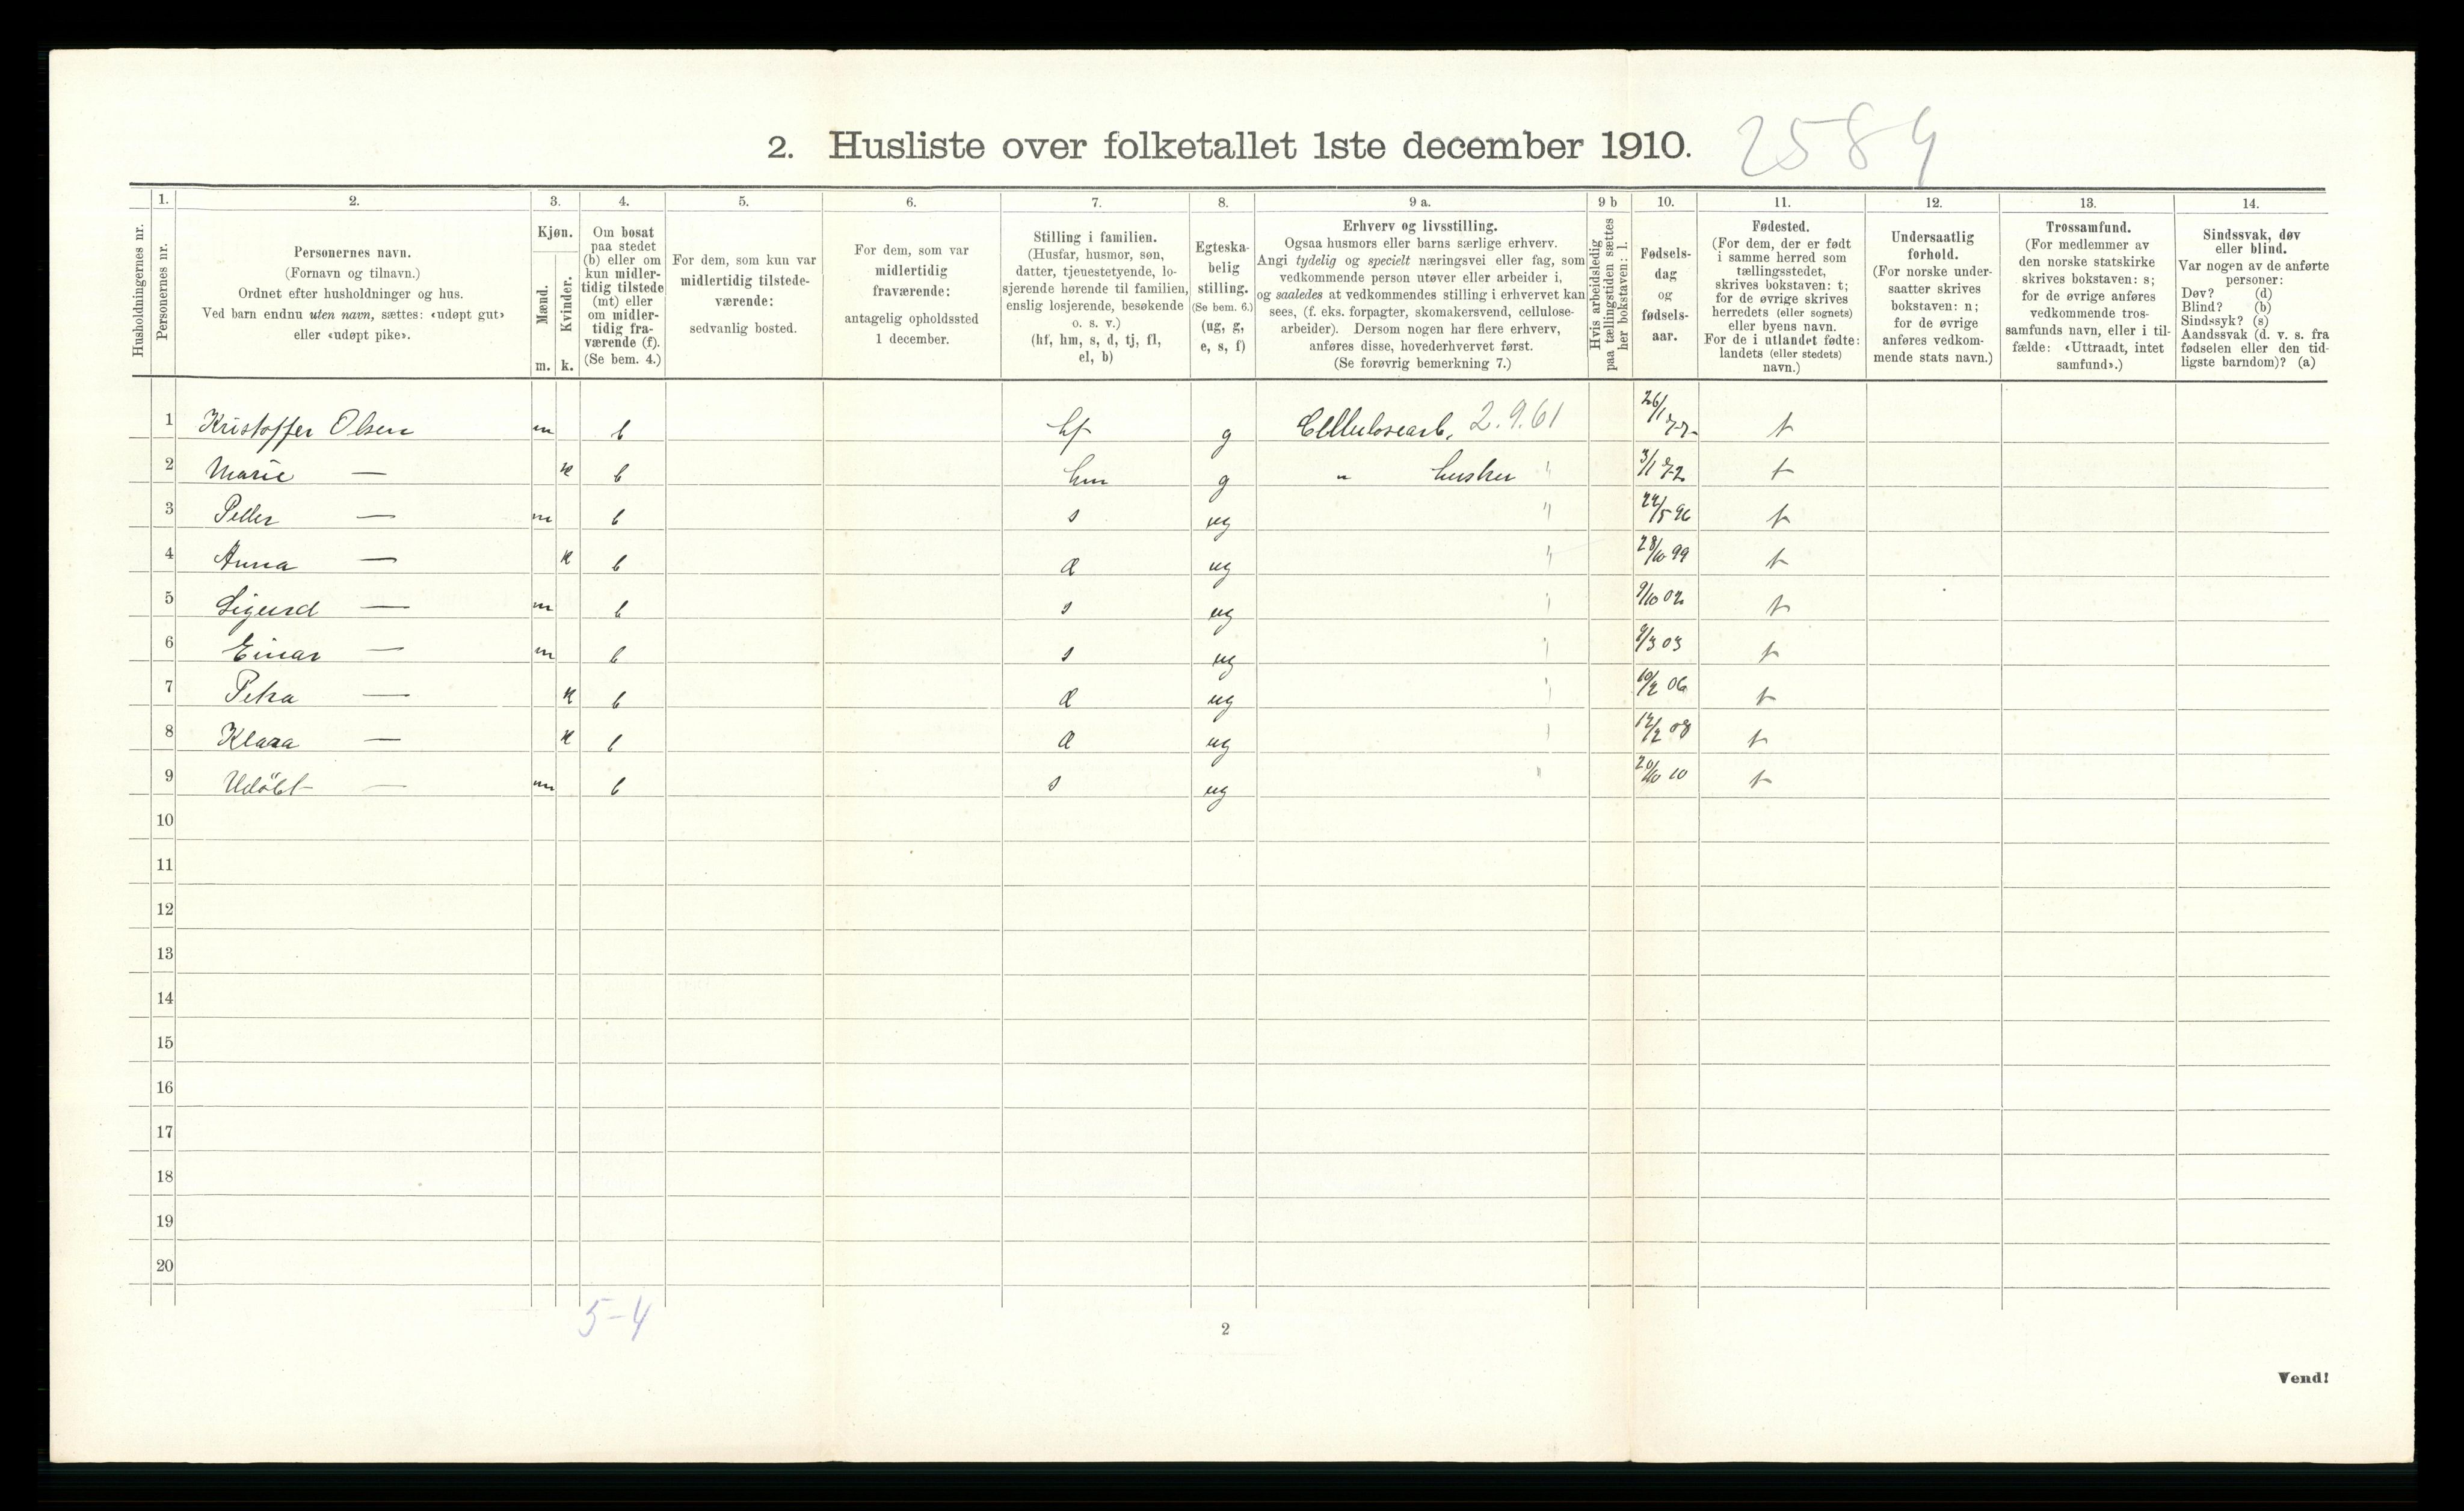 2. Husliste over folketallet 1ste december 1910. 2584
Husholdningernes nr.
1.
Personernes nr.
2.
Personernes navn.
(Fornavn og tilnavn.)
Ordnet efter husholdninger og hus.
Ved barn endnu uten navn, sættes: «udøpt gut»
eller «udøpt pike».
3.
Kjøn.
Mænd.
Kvinder.
m. k.
4.
Om bosat
paa stedet
(b) eller om
kun midler-
tidig tilstede
(mt) eller
om midler-
tidig fra-
værende (f).
(Se bem. 4.)
5.
For dem, som kun var
midlertidig tilstede-
værende:
sedvanlig bosted.
6.
For dem, som var
midlertidig
fraværende:
antagelig opholdssted
1 december.
7.
Stilling i familien.
(Husfar, husmor, søn,
datter, tjenestetyende, lo-
sjerende hørende til familien,
enslig losjerende, besøkende
o. s. v.)
(hf, hm, s, d, tj, fl,
el, b)
8.
Egteska-
belig
stilling.
(Se bem. 6.)
(ug, g,
e, s, f)
9 a.
Erhverv og livsstilling.
Ogsaa husmors eller barns særlige erhverv.
Angi tydelig og specielt næringsvei eller fag, som
vedkommende person utøver eller arbeider i,
og saaledes at vedkommendes stilling i erhvervet kan
sees, (f. eks. forpagter, skomakersvend, cellulose-
arbeider). Dersom nogen har flere erhverv,
anføres disse, hovederhvervet først.
(Se forøvrig bemerkning 7.)
9 b
Hvis arbeidsledig
paa tællingstiden sættes
her bokstaven: l.
10.
Fødsels-
dag
og
fødsels-
aar.
11.
Fødested.
(For dem, der er født
i samme herred som
tællingsstedet,
skrives bokstaven: t;
for de øvrige skrives
herredets (eller sognets)
eller byens navn.
For de i utlandet fødte:
landets (eller stedets)
navn.)
12.
Undersaatlig
forhold.
(For norske under-
saatter skrives
bokstaven: n;
for de øvrige
anføres vedkom-
mende stats navn.)
13.
Trossamfund.
(For medlemmer av
den norske statskirke
skrives bokstaven: s;
for de øvrige anføres
vedkommende tros-
samfunds navn, eller i til-
fælde: «Uttraadt, intet
samfund».)
14.
Sindssvak, døv
eller blind.
Var nogen av de anførte
personer:
Døv? (d)
Blind? (b)
Sindssyk? (s)
Aandssvak (d. v. s. fra
fødselen eller den tid-
ligste barndom)? (a)
1 Kristoffer Olsen m b hf g Cellulosearb. 2.9.61 26/1 77 t
2 Marie — k b hm g " hustru " 3/1 72 t
3 Petter — m b s ug " 24/5 96 t
4 Anna — k b d ug " 28/10 99 t
5 Sigurd — m b s ug " 9/10 02 t
6 Einar — m b s ug " 9/3 03 t
7 Petra — k b d ug " 10/2 06 t
8 Klara — k b d ug " 12/2 08 t
9 Udöbt — m b s ug " 20/10 10 t
10
11
12
13
14
15
16
17
18
19
20
5-4
2
Vend!